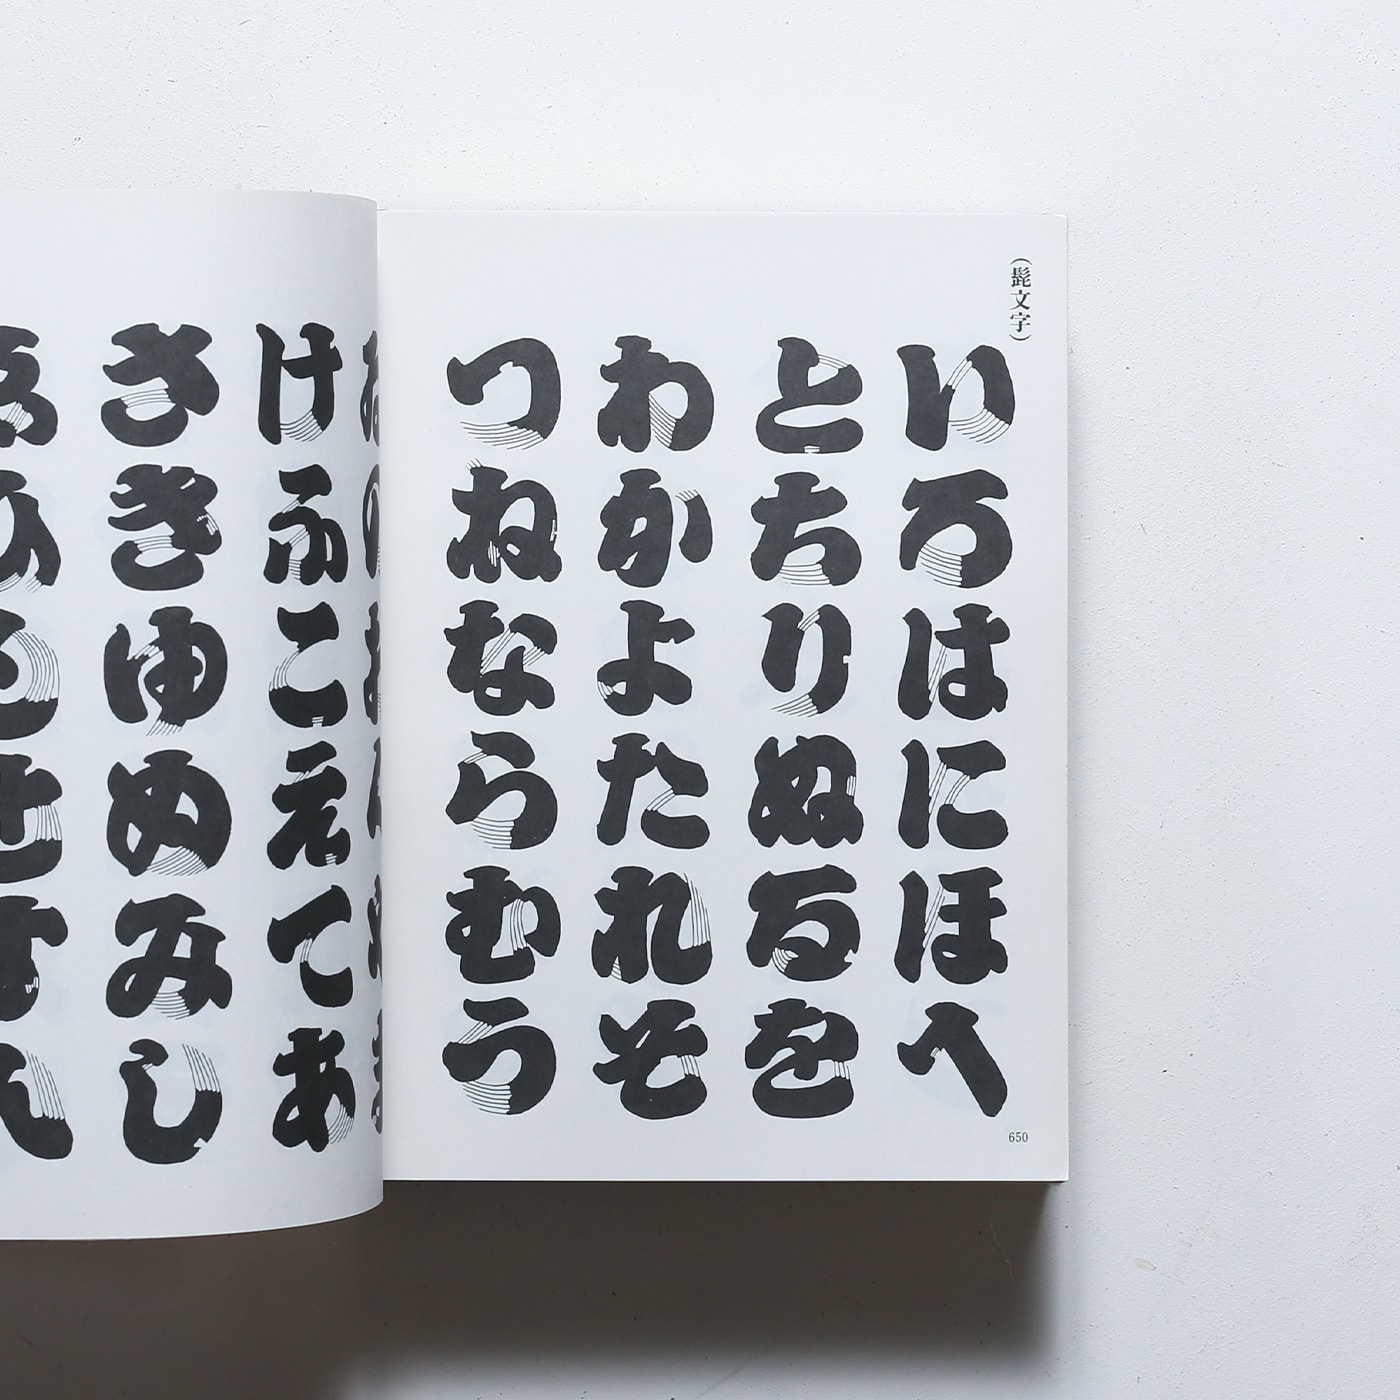 (髭文字)
いろはにほへ
とちりぬるを
わかよたれそ
つねならむう
けふこえてあ
さきゆめみし
ゑひもせすん
650